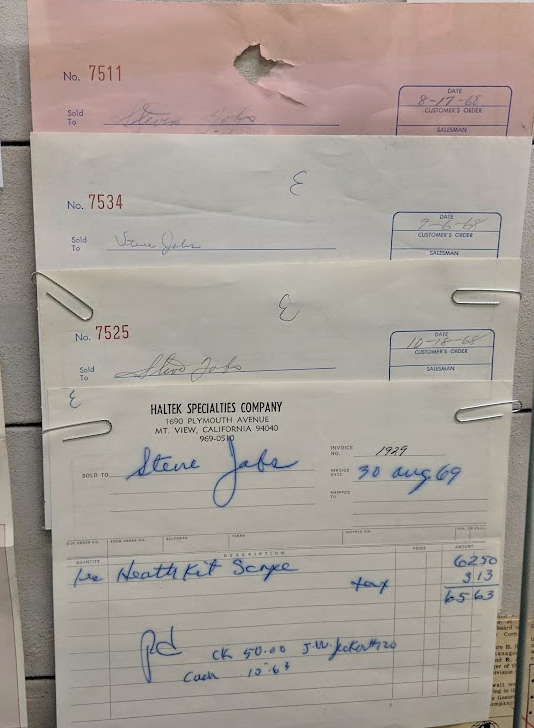 No. 7511
DATE
8-17-68
CUSTOMER'S ORDER
SALESMAN
Sold To Steven Jobs
No. 7534
DATE
9-6-68
CUSTOMER'S ORDER
SALESMAN
Sold To Steve Jobs
No. 7525
DATE
10-18-68
CUSTOMER'S ORDER
SALESMAN
Sold To Steve Jobs
HALTEK SPECIALTIES COMPANY
1690 PLYMOUTH AVENUE
MT. VIEW, CALIFORNIA 94040
969-0510
INVOICE NO. 1929
SOLD TO Steve Jobs
INVOICE DATE 30 Aug 69
SHIPPED TO
TERMS
DESCRIPTION
QUANTITY PRICE AMOUNT
Heath Kit Scope 6250
tax 313
6563
pd CK 50.00 J.W.
Cash 15.63